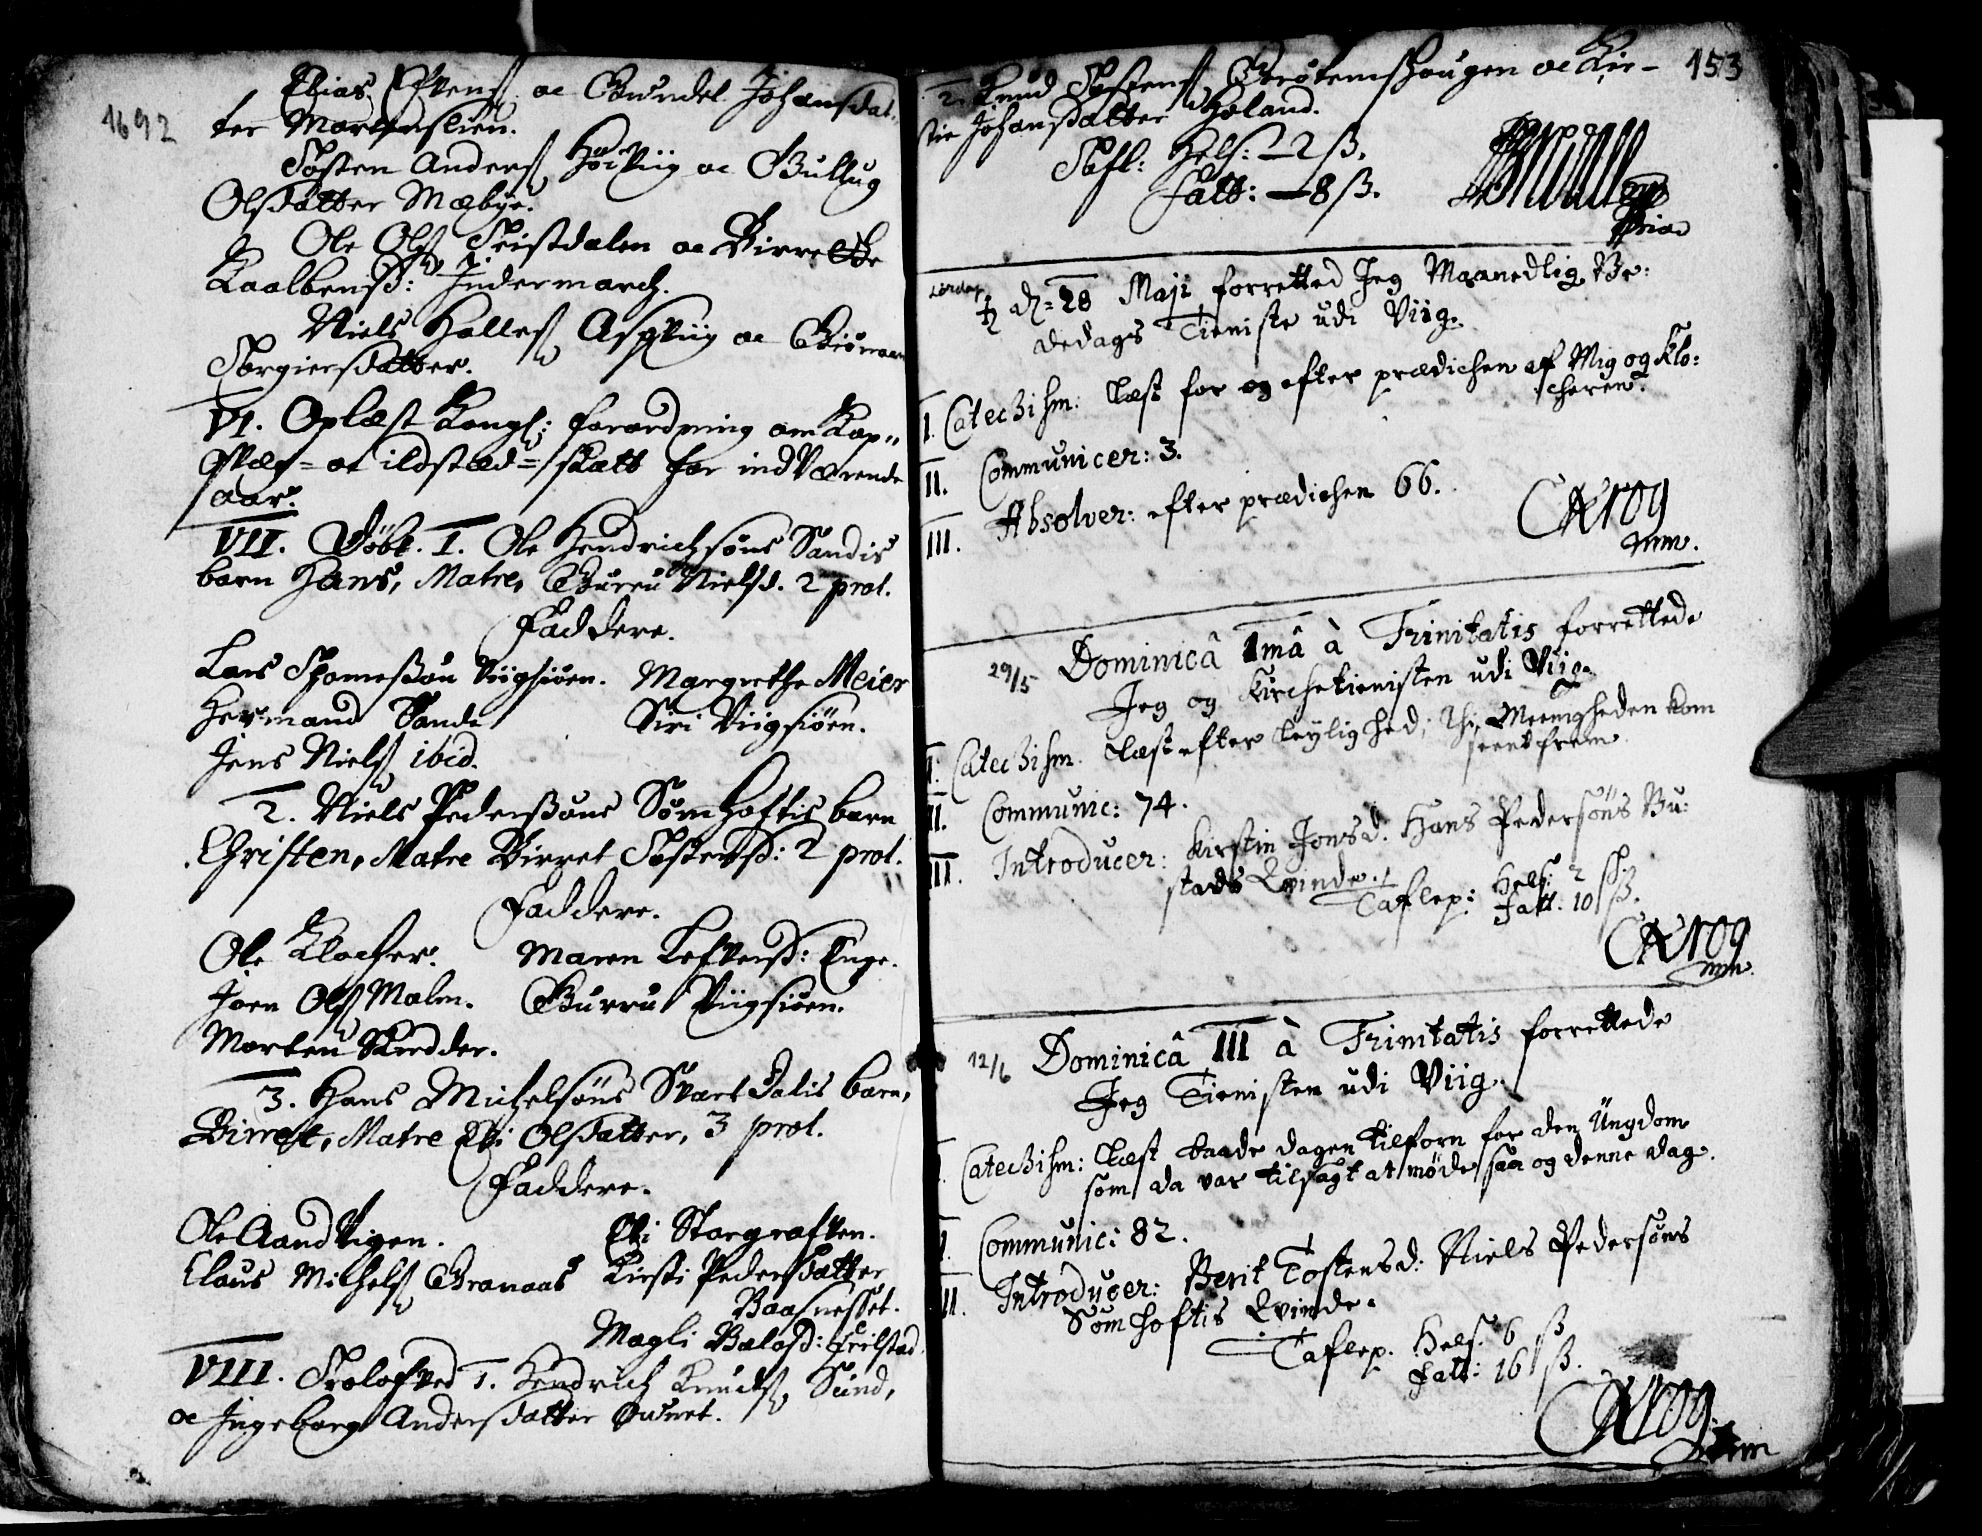 1692
Elias Efvens. oc Gundel Johansdat-
ter Morkveslien.
Tosten Anders. Høiviig oc Gullug
Olsdatter Mæbye.
Ole Ols. Tristdalen oc Birrette
Kaalbensd: Indermarch.
Niels Halles. Aspviig oc
Torgiersdatter.
VI. Oplæst Kongl: forordning om Kop,,
qvæg- oc ildsted-skatt for indværende
aar.
VII. Døbt. 1. Ole Hendrichsøns Sandis
barn Hans, Matre, Gurru Nielsd. 2 prot.
Faddere.
Lars Thomesøn Viigsiøen. Margrethe Meier
Hermand Sandi Siri Viigsiøen.
Jens Niels. ibid.
2. Niels Pedersøns Sømhoftis barn
Christen, Matre Birret Tostensd: 2 prot.
Faddere.
Ole Klocher. Maren Lefversd: Enge.
Joen Ols. Malm. Gurru Viigsiøen.
Morten Skredder.
3. Hans Michelsøns Svartdalis barn,
Birret, Matre Eli Olsdatter, 3 prot.
Faddere.
Ole Aandvigen. Eli Storgrafven.
Claus Michels. Granaas Kirsti Pedersdatter
Baasnesset.
Magli Balasd: Treilstad.
VIII. Trolofved 1. Hendrich Knuds. Sund,
oc Ingeborg Andersdatter Owret.
153
2. Knud Tostens. Grøtemshougen oc Kir-
stie Johansdatter Høland.
Tafl: Hels: – 2 ß.
Fatt: – 8 ß.
Lørdag
♄ d: 28 Maji forretted Jeg Maanedlig Be:
dedags Tieniste udi Viig.
I. Catechism: Læst for og efter prædichen af Mig og Klo:
scheren.
II. Communicer: 3.
III. Absolver: efter prædichen 66.
CKrog
mm.
29/5 Dominicâ 1mâ à Trinitatis forrettede
Jeg og Kirchetienisten udi Viig.
I. Catechism. Læst efter leylighed; thi Meenigheden kom
seent frem.
II. Communic: 74.
III. Introducer: Kirstin Jonsd. Hans Pedersøns Bu:
stads Qvinde.
Taflep: Hels: 2 ß.
Fatt. 10 ß.
CKrog
mm.
12/6 Dominicâ III à Trinitatis forrettede
Jeg Tienisten udi Viig.
I. Catechism: Læst baade dagen tilforn for den Ungdom
som da var tilsagt at møde, saa og denne dag.
II. Communic: 82.
III. Introducer: Berit Tostensd: Niels Pedersøns
Sømhoftis Qvinde.
Taflep. Hels. 6 ß
Fatt: 16 ß.
CKrog
mm